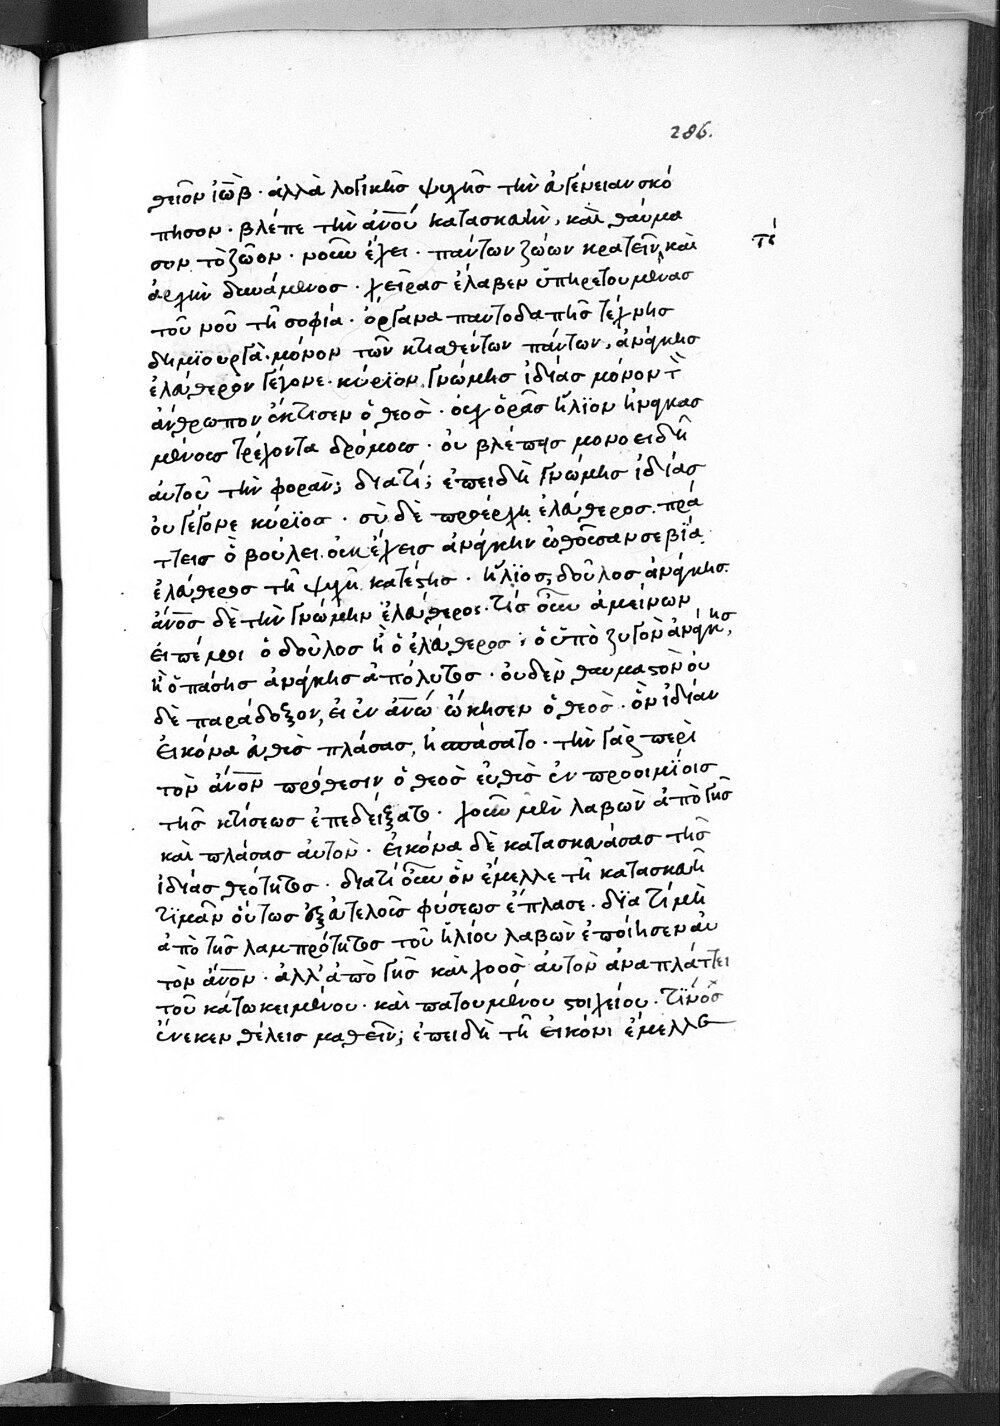 286.
θεῖον ἰὼβ · ἀλλὰ λογικῆς ψυχῆς τὴν εὐγένειαν σκό
πησον · βλέπε τὴν ἀνου κατασκευὴν, καὶ θαύμα
σον τὸ ζῶον · νοῦν ἔχει · πάντων ζώων κρατεῖν, καὶ
τέ
ἄρχειν δυνάμενος · χεῖρας ἔλαβεν ὑπηρετουμένας
τοῦ νοῦ τῆ σοφία · ὄργανα παντοδαπῆς τέχνης
δημϊουργὰ · μόνον τῶν κτισθέντων πάντων, ἀνάγκης
ἐλεύθερον γέγονε · κύρϊον γνώμης ἰδίας μόνον τ
ἄνθρωπον ἔκτισεν ὁ θεὸς · οὐχ ὁρᾶς ἥλϊον ἠναγκασ
μένοις τρέχοντα δρόμοις · οὐ βλέπεις μονοειδῆ
αὐτοῦ τὴν φορὰν; διατί; ἐπειδὴ γνώμης ἰδίας
οὐ γέγονε κύρϊος · σὺ δὲ προέρχη ἐλεύθερος · πρά
ττεις ὃ βούλει · οὐκ ἔχεις ἀνάγκην ὠθοῦσαν σε βίᾳ
ἐλεύθερος τῆ ψυχῆ κατέστης · ἥλϊος, δοῦλος ἀνάγκης
ἄνος δὲ τὴν γνώμην ἐλεύθερος · τίς οὖν ἀμείνων
εἰπέ μοι ὁ δοῦλος ἢ ὁ ἐλεύθερος · ὁ ὑπὸ ζυγὸν ἀνάγκης,
ἢ ὁ πάσης ἀνάγκης ἀπόλυτος · οὐδὲν θαυμαστὸν οὐ
δὲ παράδοξον, εἰ ἐν ἀνω ᾤκησεν ὁ θεὸς · ὃν ἰδίαν
εἰκόνα εὐθὺς πλάσας, ἠσπάσατο · τὴν γὰρ περὶ
τὸν ἄνον πρόθεσιν ὁ θεὸς εὐθὺς ἐν προοιμίοις
τῆς κτίσεως ἐπεδείξατο · χοῦν μὲν λαβὼν ἀπὸ γῆς
καὶ πλάσας αὐτὸν · εἰκόνα δὲ κατασκευάσας τῆς
ἰδίας θεότητος · διατί οὖν ὃν ἔμελλε τῆ κατασκευῆ
τϊμᾶν οὕτως ἐξ εὐτελοῦς φύσεως ἔπλασε · δϊατί μὴ
ἀπὸ τῆς λαμπρότητος τοῦ ἡλίου λαβὼν ἐποίησεν αὐ
τὸν ἄνον · ἀλλ' ἀπὸ γῆς καὶ χοὸς αὐτὸν ἀναπλάττει
τοῦ κάτω κειμένου · καὶ πατουμένου στοιχείου · τίνος
ἕνεκεν θέλεις μαθεῖν; ἐπειδὴ τῆ εἰκόνι ἔμελλε